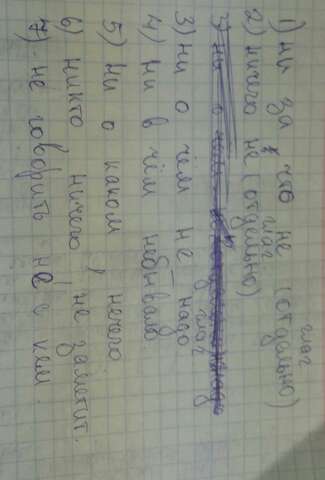 глаг
1) ни за что не (отдельно)
глаг
2) ничего не (отдельно)
глаг
3) ни о чём не надо
4) ни в чём небывало
5) ни о каком, нечего
6) никто ничего не заметит.
7) не говорить не с кем.